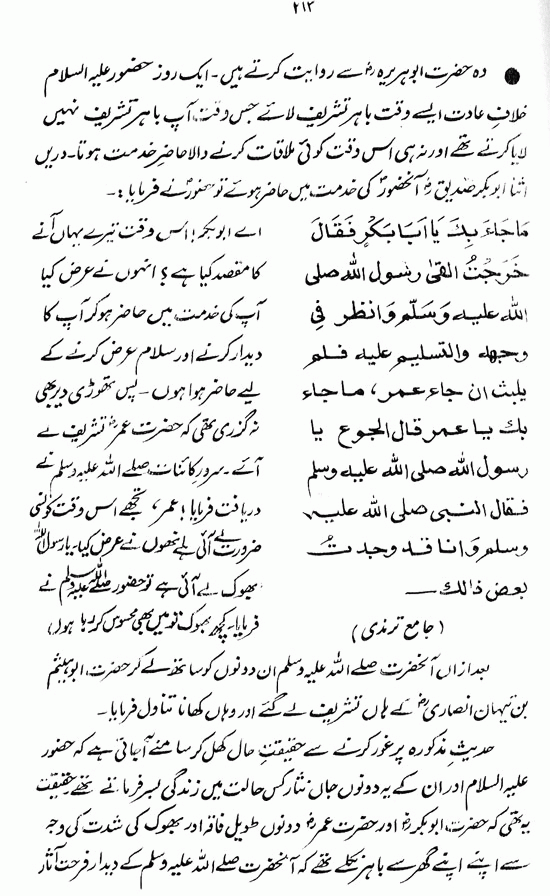 ۲۱۳
● وہ حضرت ابو ہریرہ رضؓ سے روایت کرتے ہیں۔ ایک روز حضور علیہ السلام
خلافِ عادت ایسے وقت باہر تشریف لائے جس وقت آپ باہر تشریف نہیں
لایا کرتے تھے اور نہ ہی اس وقت کوئی ملاقات کرنے والا حاضر خدمت ہوتا۔ دریں
اثنا ابوبکر صدیق رضؓ آنحضورؐ کی خدمت میں حاضر ہوئے تو حضورؐ نے فرمایا:۔
مَاجَاءَ بِكَ يَا اَبَا بَكْرٍ فَقَالَ
خَرَجْتُ القىٰ رسول الله صلى
الله عليه وَسَلَّم وَانظر فى
وجهه والتسليم عليه فلم
يلبث ان جاء عمر، ما جاء
بك يا عمر قال الجوع يا
رسول الله صلى الله عليه وسلم
فقال النبى صلى الله عليه
وسلم وَانا قد وجدت
بعض ذالك —
(جامع ترمذی)
اے ابوبکر! اس وقت تیرے یہاں آنے
کا مقصد کیا ہے؟ انہوں نے عرض کیا
آپ کی خدمت میں حاضر ہو کر آپ کا
دیدار کرنے اور سلام عرض کرنے کے
لیے حاضر ہوا ہوں۔ پس تھوڑی دیر بھی
نہ گزری تھی کہ حضرت عمرؓ تشریف لے
آئے۔ سرور کائنات صلے اللہ علیہ وسلم نے
دریافت فرمایا! عمر، تجھے اس وقت کونسی
ضرورت لے آئی ہے انھوں نے عرض کیا۔ یا رسول اللہ ﷺ
بھوک لے آئی ہے تو حضور ﷺ نے
فرمایا۔ کچھ بھوک تو میں بھی محسوس کر رہا ہوں)
بعد ازاں آنحضرت صلے اللہ علیہ وسلم ان دونوں کو ساتھ لے کر حضرت ابوہیثم
بن تیہان انصاری رضؓ کے ہاں تشریف لے گئے اور وہاں کھانا تناول فرمایا۔
حدیثِ مذکورہ پر غور کرنے سے حقیقتِ حال کھل کر سامنے آجاتی ہے کہ حضور
علیہ السلام اور ان کے یہ دونوں جاں نثار کس حالت میں زندگی بسر فرماتے تھے حقیقت
یہ تھی کہ حضرت ابوبکر رضؓ اور حضرت عمر رضؓ دونوں طویل فاقہ اور بھوک کی شدت کی وجہ
سے اپنے اپنے گھر سے باہر نکلے تھے کہ آنحضرت صلے اللہ علیہ وسلم کے دیدار فرحت آثار